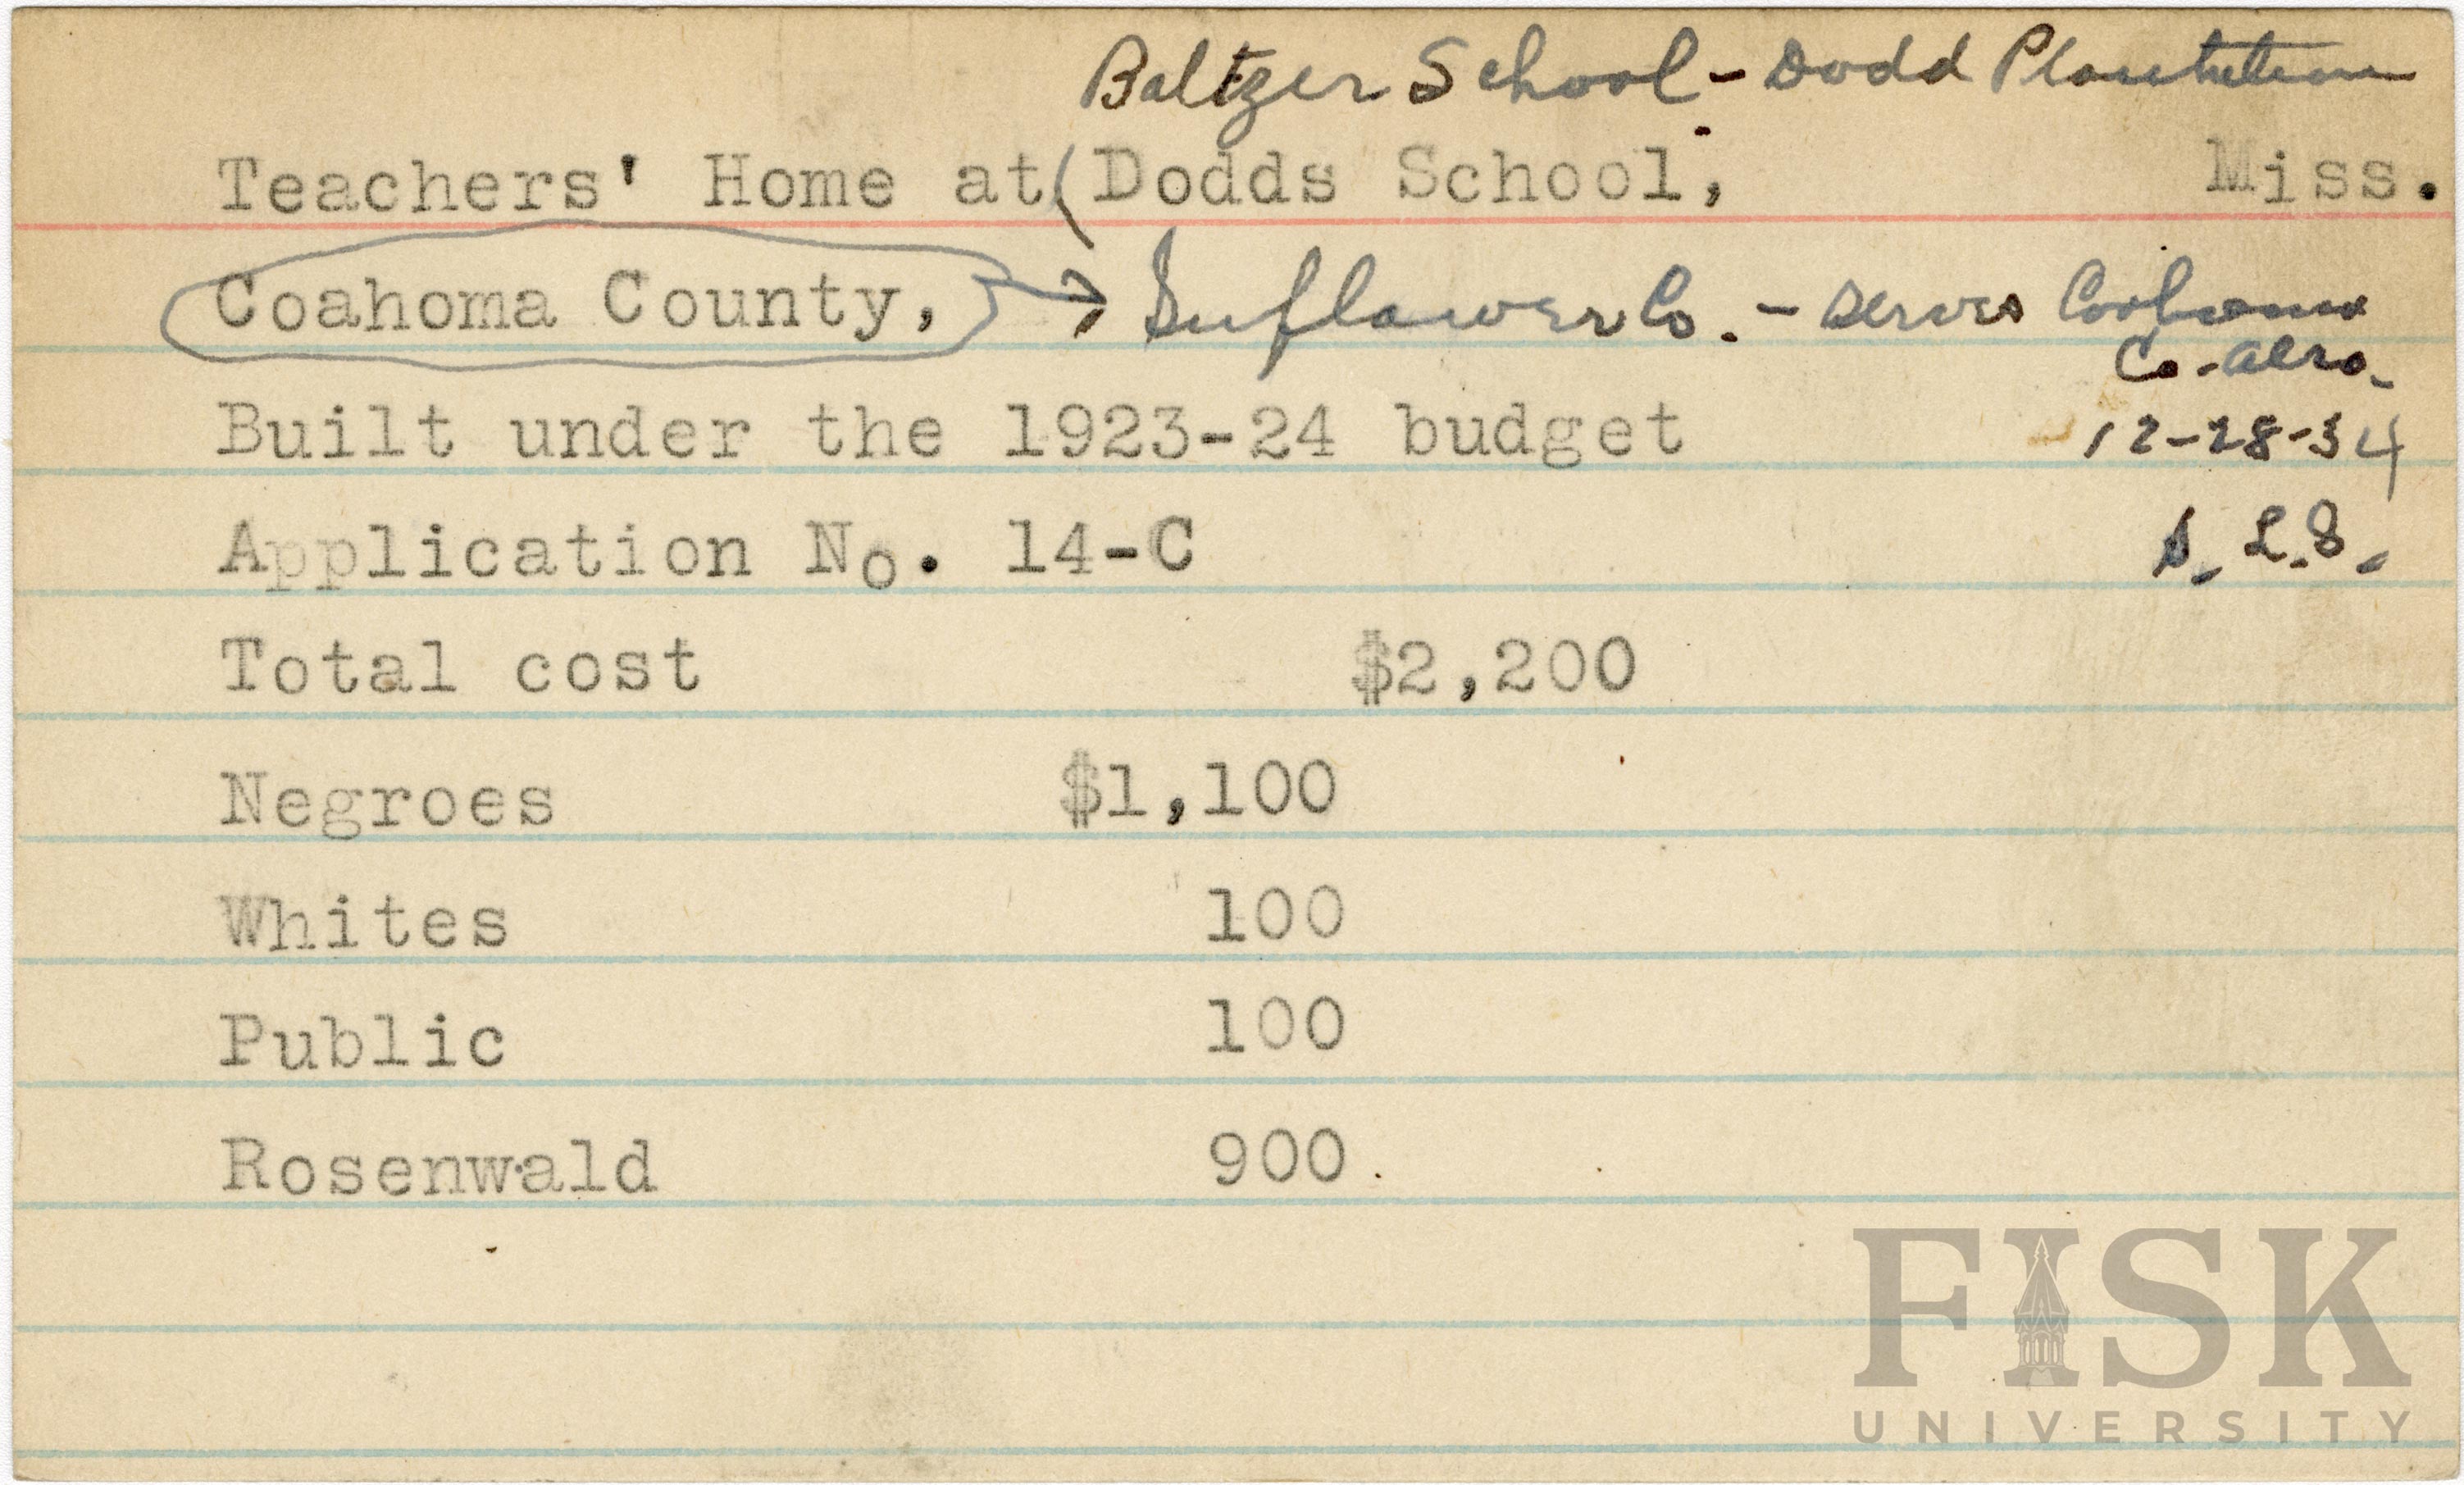 Baltzer School - Dodd Plantation
Teachers' Home at (Dodds School, Miss.
Coahoma County, → Sunflower Co. - serves Coahoma
Co. also.
Built under the 1923-24 budget 12-28-34
Application No. 14-C S.L.S.
Total cost $2,200
Negroes $1,100
Whites 100
Public 100
Rosenwald 900
FISK
UNIVERSITY